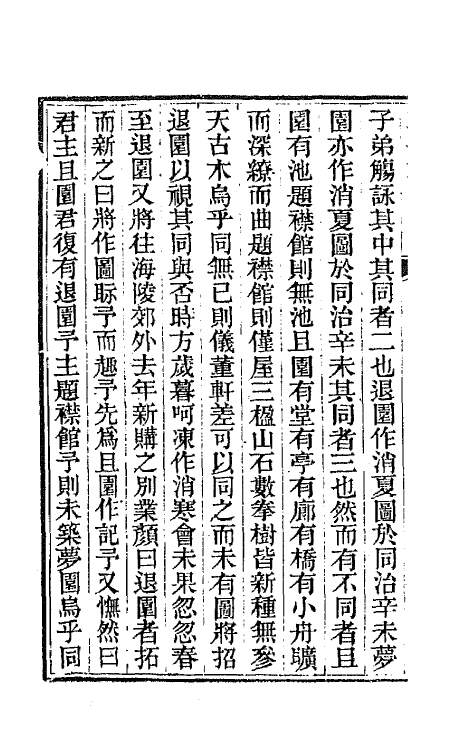 子弟觴詠其中其同者二也退園作消夏圖於同治辛未夢
園亦作消夏圖於同治辛未其同者三也然而有不同者且
園有池題襟館則無池且園有堂有亭有廊有橋有小舟曠
而深繚而曲題襟館則僅屋三楹山石數拳樹皆新種無參
天古木烏乎同無已則儀董軒差可以同之而未有圖將招
退園以視其同與否時方歲暮呵凍作消寒會未果忽忽春
至退園又將往海陵郊外去年新購之別業顏曰退園者拓
而新之曰將作圖眎予而趣予先爲且園作記予又憮然曰
君主且園君復有退園予主題襟館予則未築夢園烏乎同